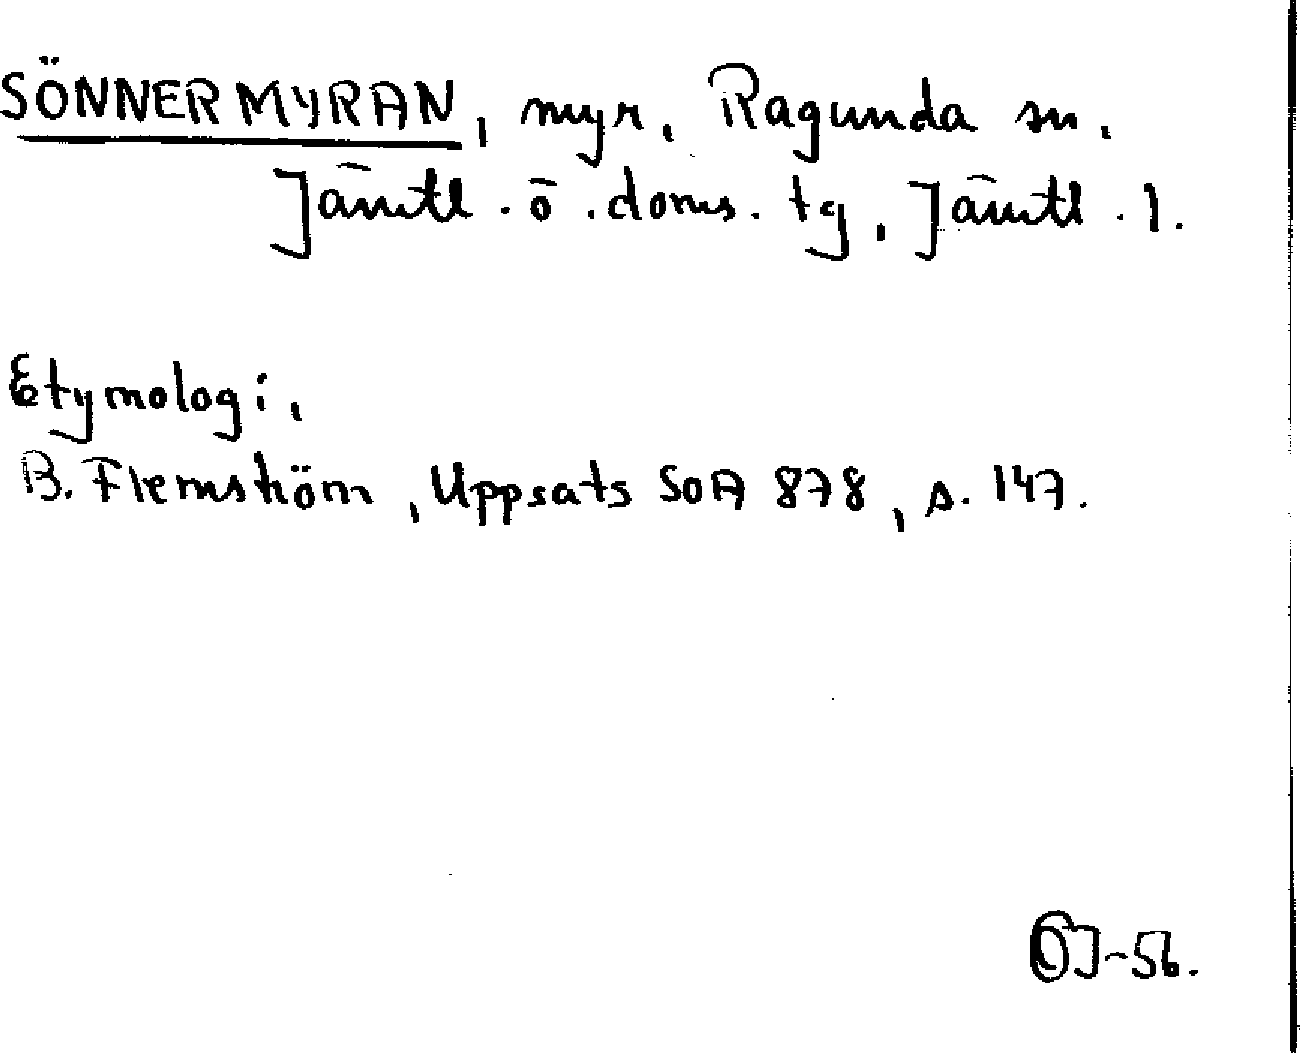 SÖNNERMYRAN, myr, Ragunda sn.
Jämtl. ö. doms. tg, Jämtl. l.
Etymologi,
B. Flemström, Uppsats SOA 878, s. 147.
-56.